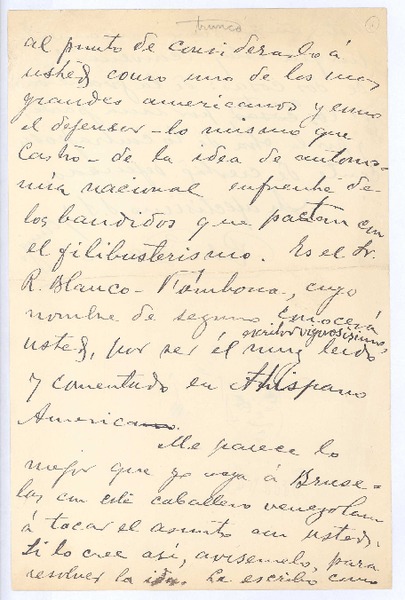 trunco
al punto de considerarlo á
usted como uno de los mas
grandes americanos y como
el defensor - lo mismo que
Castro - de la idea de autono-
mía nacional enfrente de
los bandidos que pactan con
el filibusterismo. Es el Sr.
R. Blanco-Fombona, cuyo
nombre de seguro conocerá
escritor vigorosísimo,
usted, por ser él muy leido
y comentado en Hispano
America.
Me parece lo
mejor que yo vaya á Bruse-
las con este caballero venezolano
á tocar el asunto con usted.
Si lo cree así, avísemelo, para
resolver la ida. Le escribo como